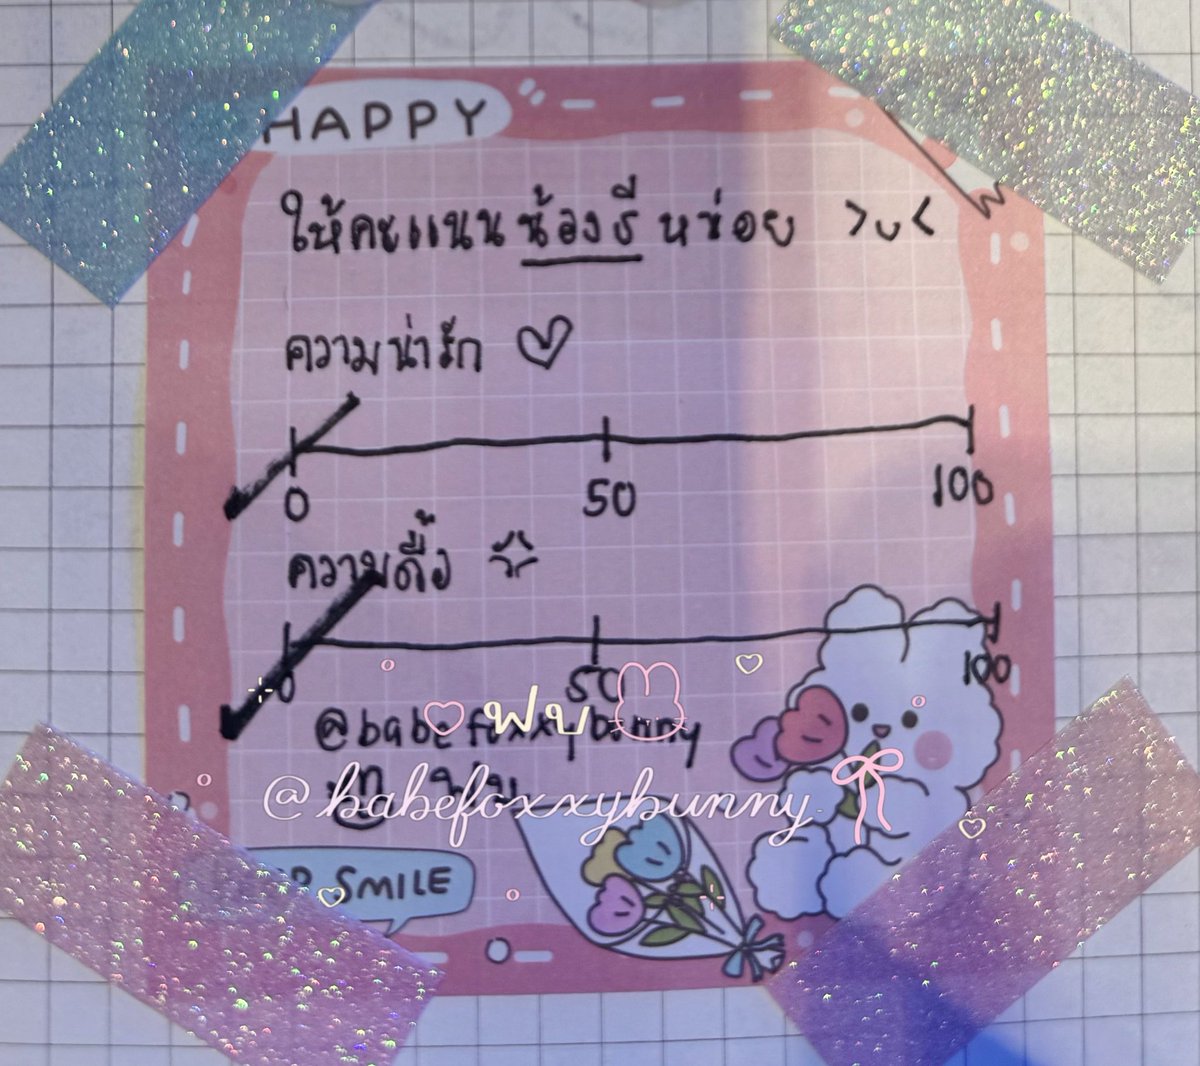 HAPPY
ให้คะแนนน้องรีหน่อย >ᴗ<
ความน่ารัก ♡
0 50 100
ความดื้อ
0 50 100
@babefoxxybunny
ฟบ
@babefoxxybunny
SMILE